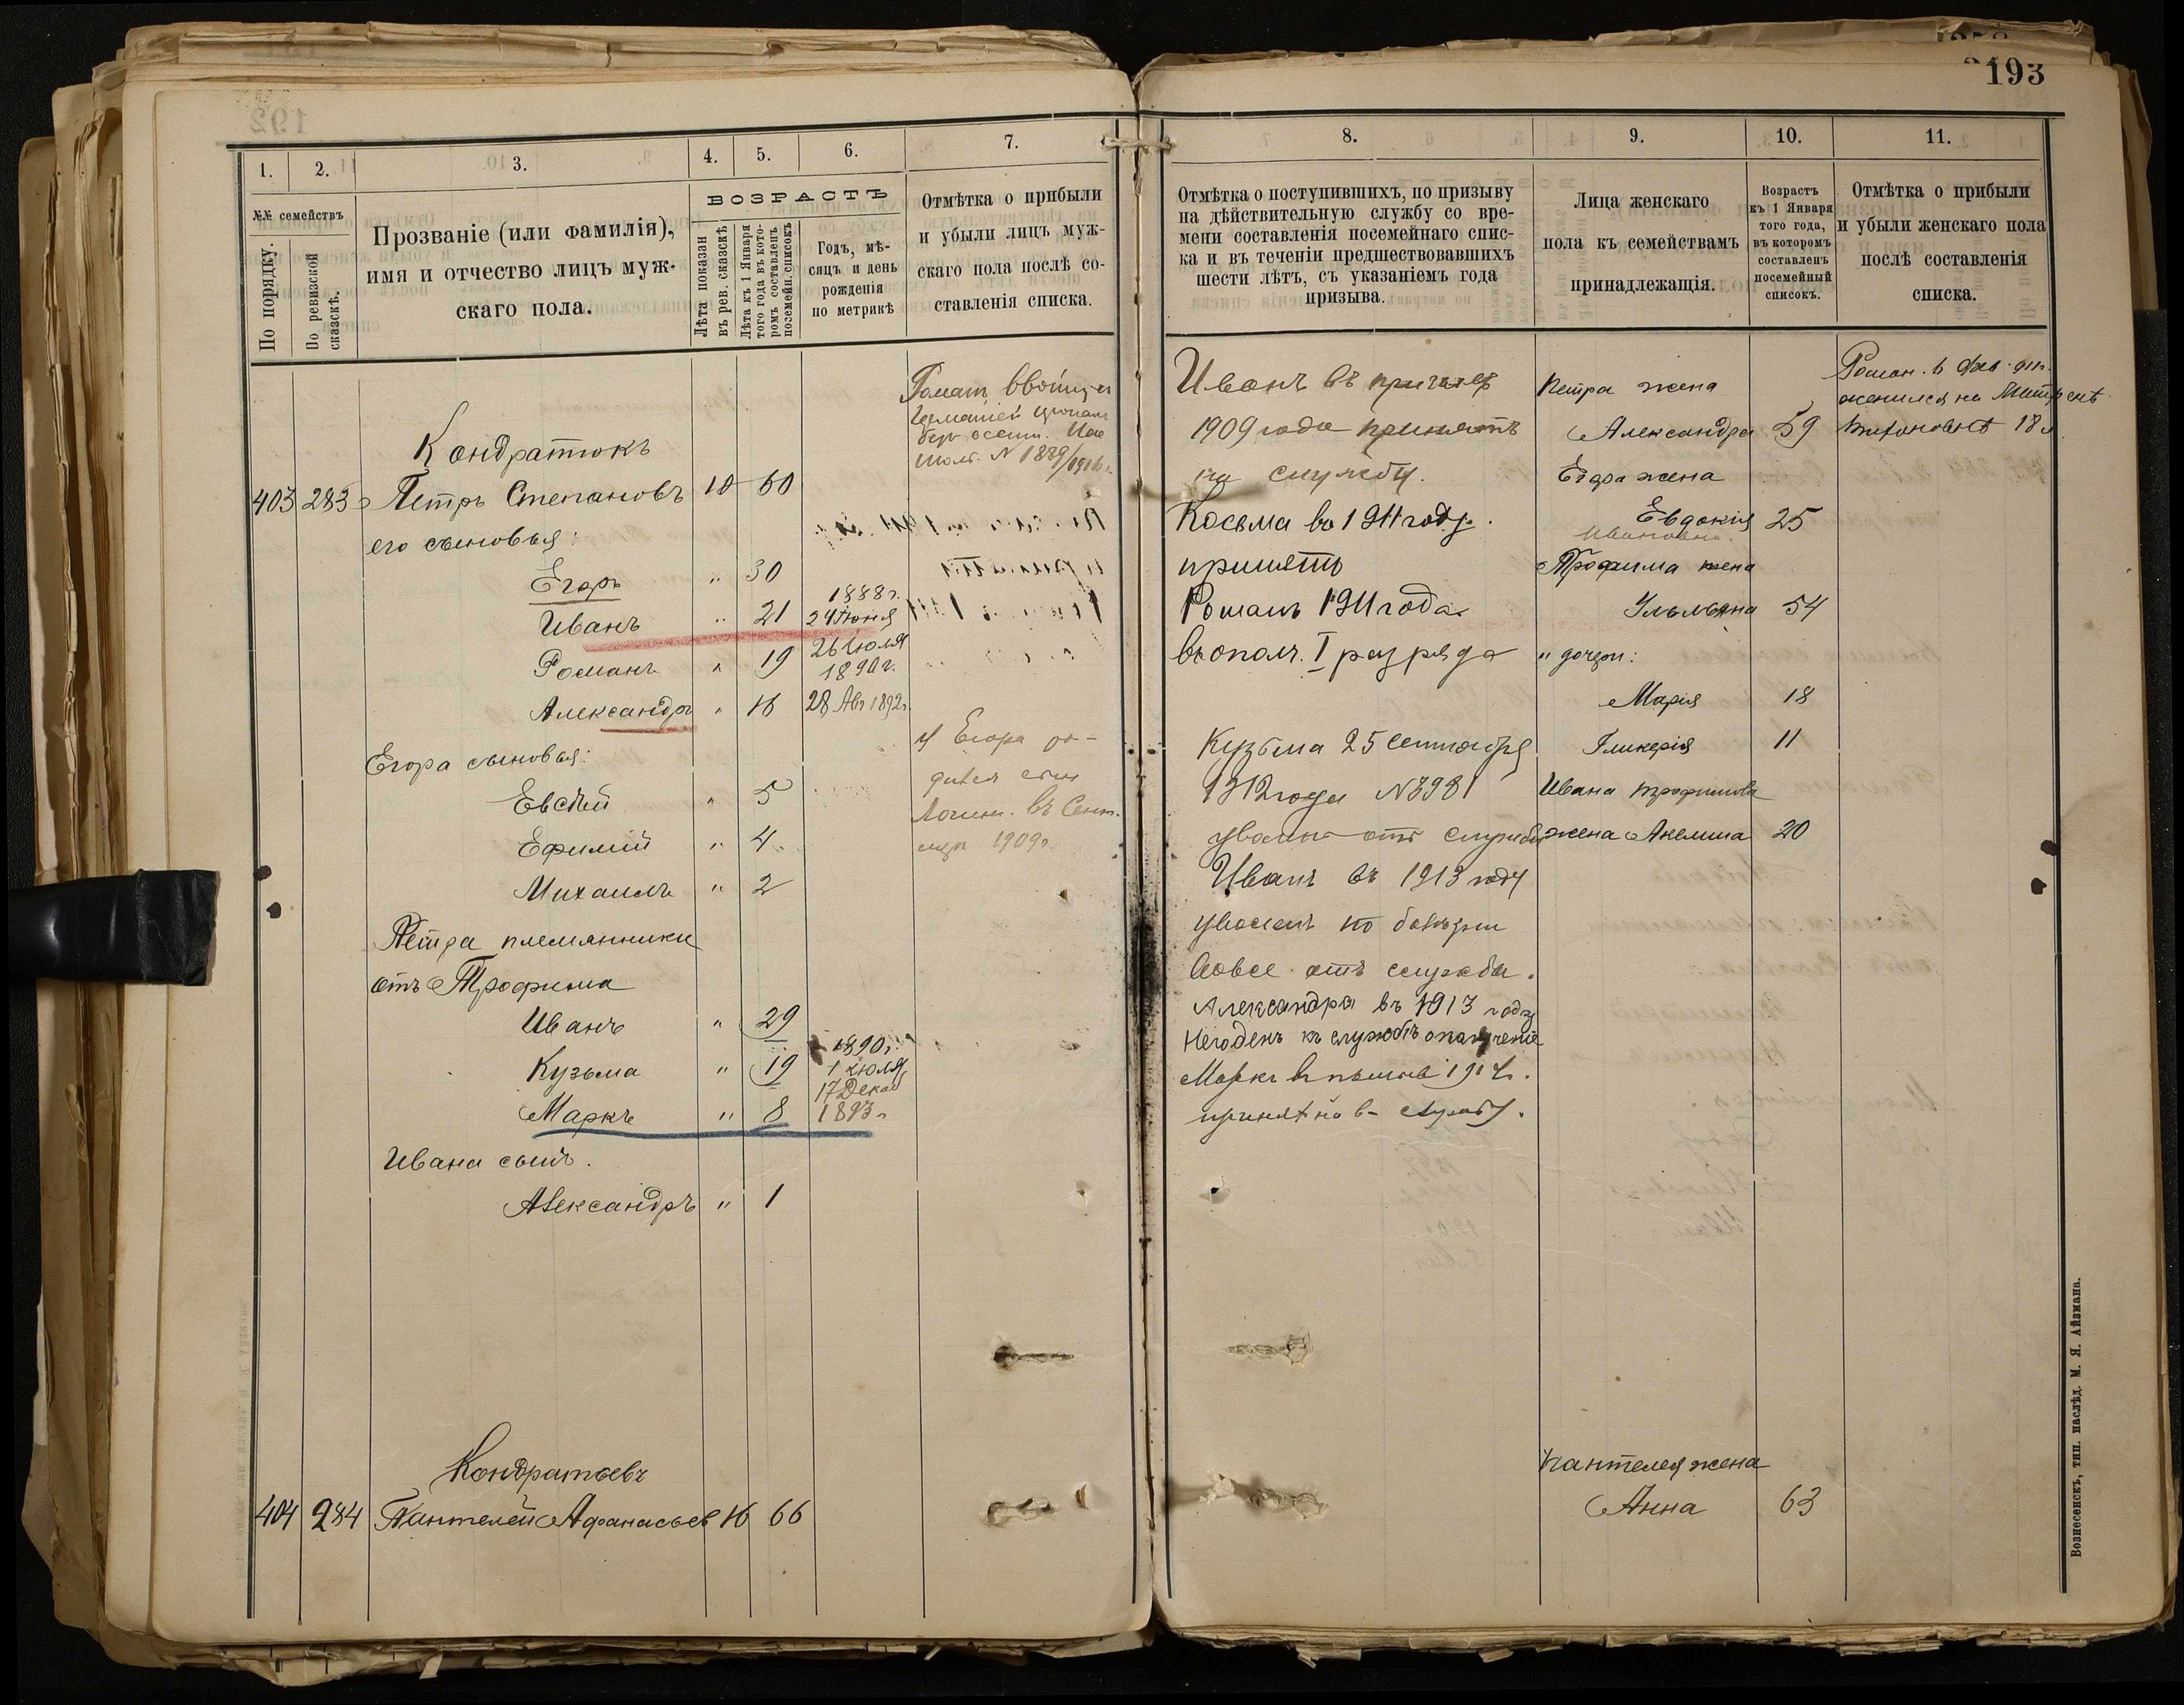 193
1.
2.
3.
4.
5.
6.
7.
№№ семействъ
По порядку.
По ревизской сказскѣ.
Прозваніе (или фамилія),
имя и отчество лицъ муж-
скаго пола.
ВОЗРАСТЪ
Лѣта показан
въ рев. сказскѣ
Лѣта къ 1 Января
того года въ кото-
ромъ составленъ
посемейн. списокъ
Годъ, мѣ-
сяцъ и день
рожденія
по метрикѣ
Отмѣтка о прибыли
и убыли лицъ муж-
скаго пола послѣ со-
ставленія списка.
Кондратюкъ
403 283 Петръ Степановъ 10 60
его сыновья:
Егоръ " 30
1888 г.
Иванъ " 21 24 Іюня
Романъ " 19 26 Іюля
1890 г.
Александръ " 16 28 Авг 1892 г.
Егора сыновья:
Евсѣй " 5
Ефимій " 4
Михаилъ " 2
Петра племянники
отъ Трофима
Иванъ " 29
Кузьма " 19 1890 г.
1 Іюля
Маркъ " 8 17 Декаб
1893 г.
Ивана сынъ.
Александръ " 1
Романъ
№ 1889/1916 г.
У Егора ро-
дился сынъ
въ Сент.
1909 г.
Кондратьевъ
404 284 Пантелей Афанасьев 16 66
8.
9.
10.
11.
Отмѣтка о поступившихъ, по призыву
на дѣйствительную службу со вре-
мени составленія посемейнаго спис-
ка и въ теченіи предшествовавшихъ
шести лѣтъ, съ указаніемъ года
призыва.
Лица женскаго
пола къ семействамъ
принадлежащія.
Возрастъ
къ 1 Января
того года,
въ которомъ
составленъ
посемейный
списокъ.
Отмѣтка о прибыли
и убыли женскаго пола
послѣ составленія
списка.
Иванъ въ призывъ
1909 года принятъ
на службу.
Косьма въ 1911 году
принятъ
Романъ 1911 года
въ ополч. I разряда
Кузьма 25 Сентября
1912 года № 3981
уволенъ отъ службы
Иванъ въ 1913 году
уволенъ по болѣзни
вовсе отъ службы.
Александра въ 1913 году
Негоденъ къ службѣ ополченіе
Маркъ 1914 г.
принятъ на службу.
Петра жена
Александра 59
Егора жена
Евдокія 25
Ивановна
Трофима жена
Ульяна 54
" дочери:
Марія 18
Гликерія 11
Ивана Трофимова
жена Акелина 20
Роман. в фев.
женился на Матренѣ
Тихоновнѣ 18 л
Пантелея жена
Анна 63
Вознесенскъ, тип. наслѣд. М. Я. Айзмана.